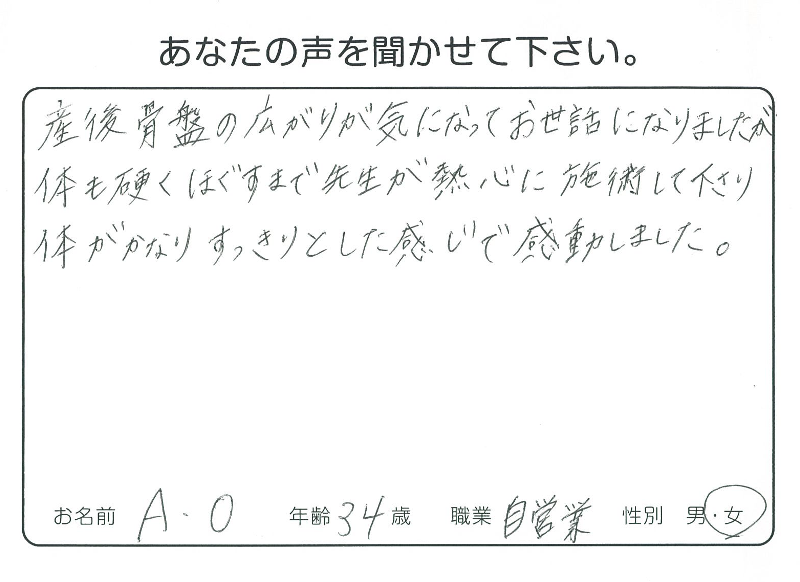 あなたの声を聞かせて下さい。
産後骨盤の広がりが気になってお世話になりましたが
体も硬くほぐすまで先生が熱心に施術して下さり
体がかなりすっきりとした感じで感動しました。
お名前 A.O 年齢 34 歳 職業 自営業 性別 男・女